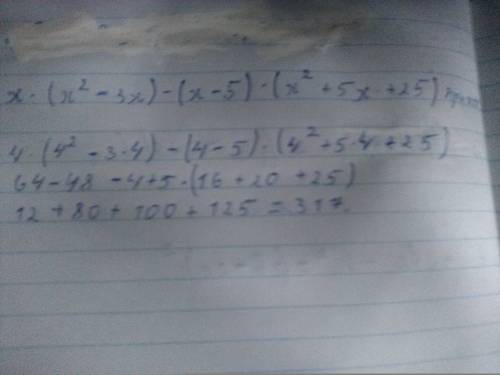 x · (x² - 3x) - (x - 5) · (x² + 5x + 25)
4 · (4² - 3·4) - (4 - 5) · (4² + 5·4 + 25)
64 - 48 - 4 + 5 · (16 + 20 + 25)
12 + 80 + 100 + 125 = 317.